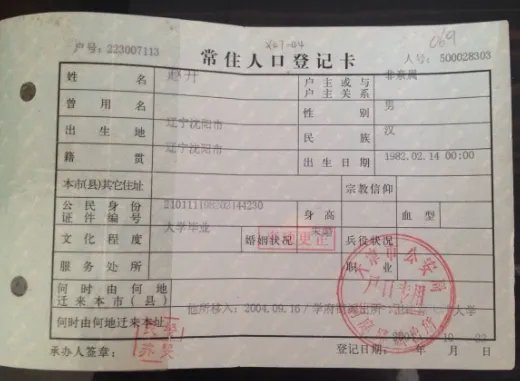 户号：223007113
常住人口登记卡
069
人号：500028303
姓名 赵开 户主或与户主关系 非亲属
曾用名 性别 男
出生地 辽宁沈阳市 民族 汉
籍贯 辽宁沈阳市 出生日期 1982.02.14 00:00
本市(县)其它住址 宗教信仰
公民身份证件编号 身高 血型
文化程度 大学毕业 婚姻状况 兵役状况
服务处所 职业
何时由何地迁来本市(县)
他所移入：2004.09.16 大学
何时由何地迁来本址
承办人签章： 登记日期： 年 10 月 22